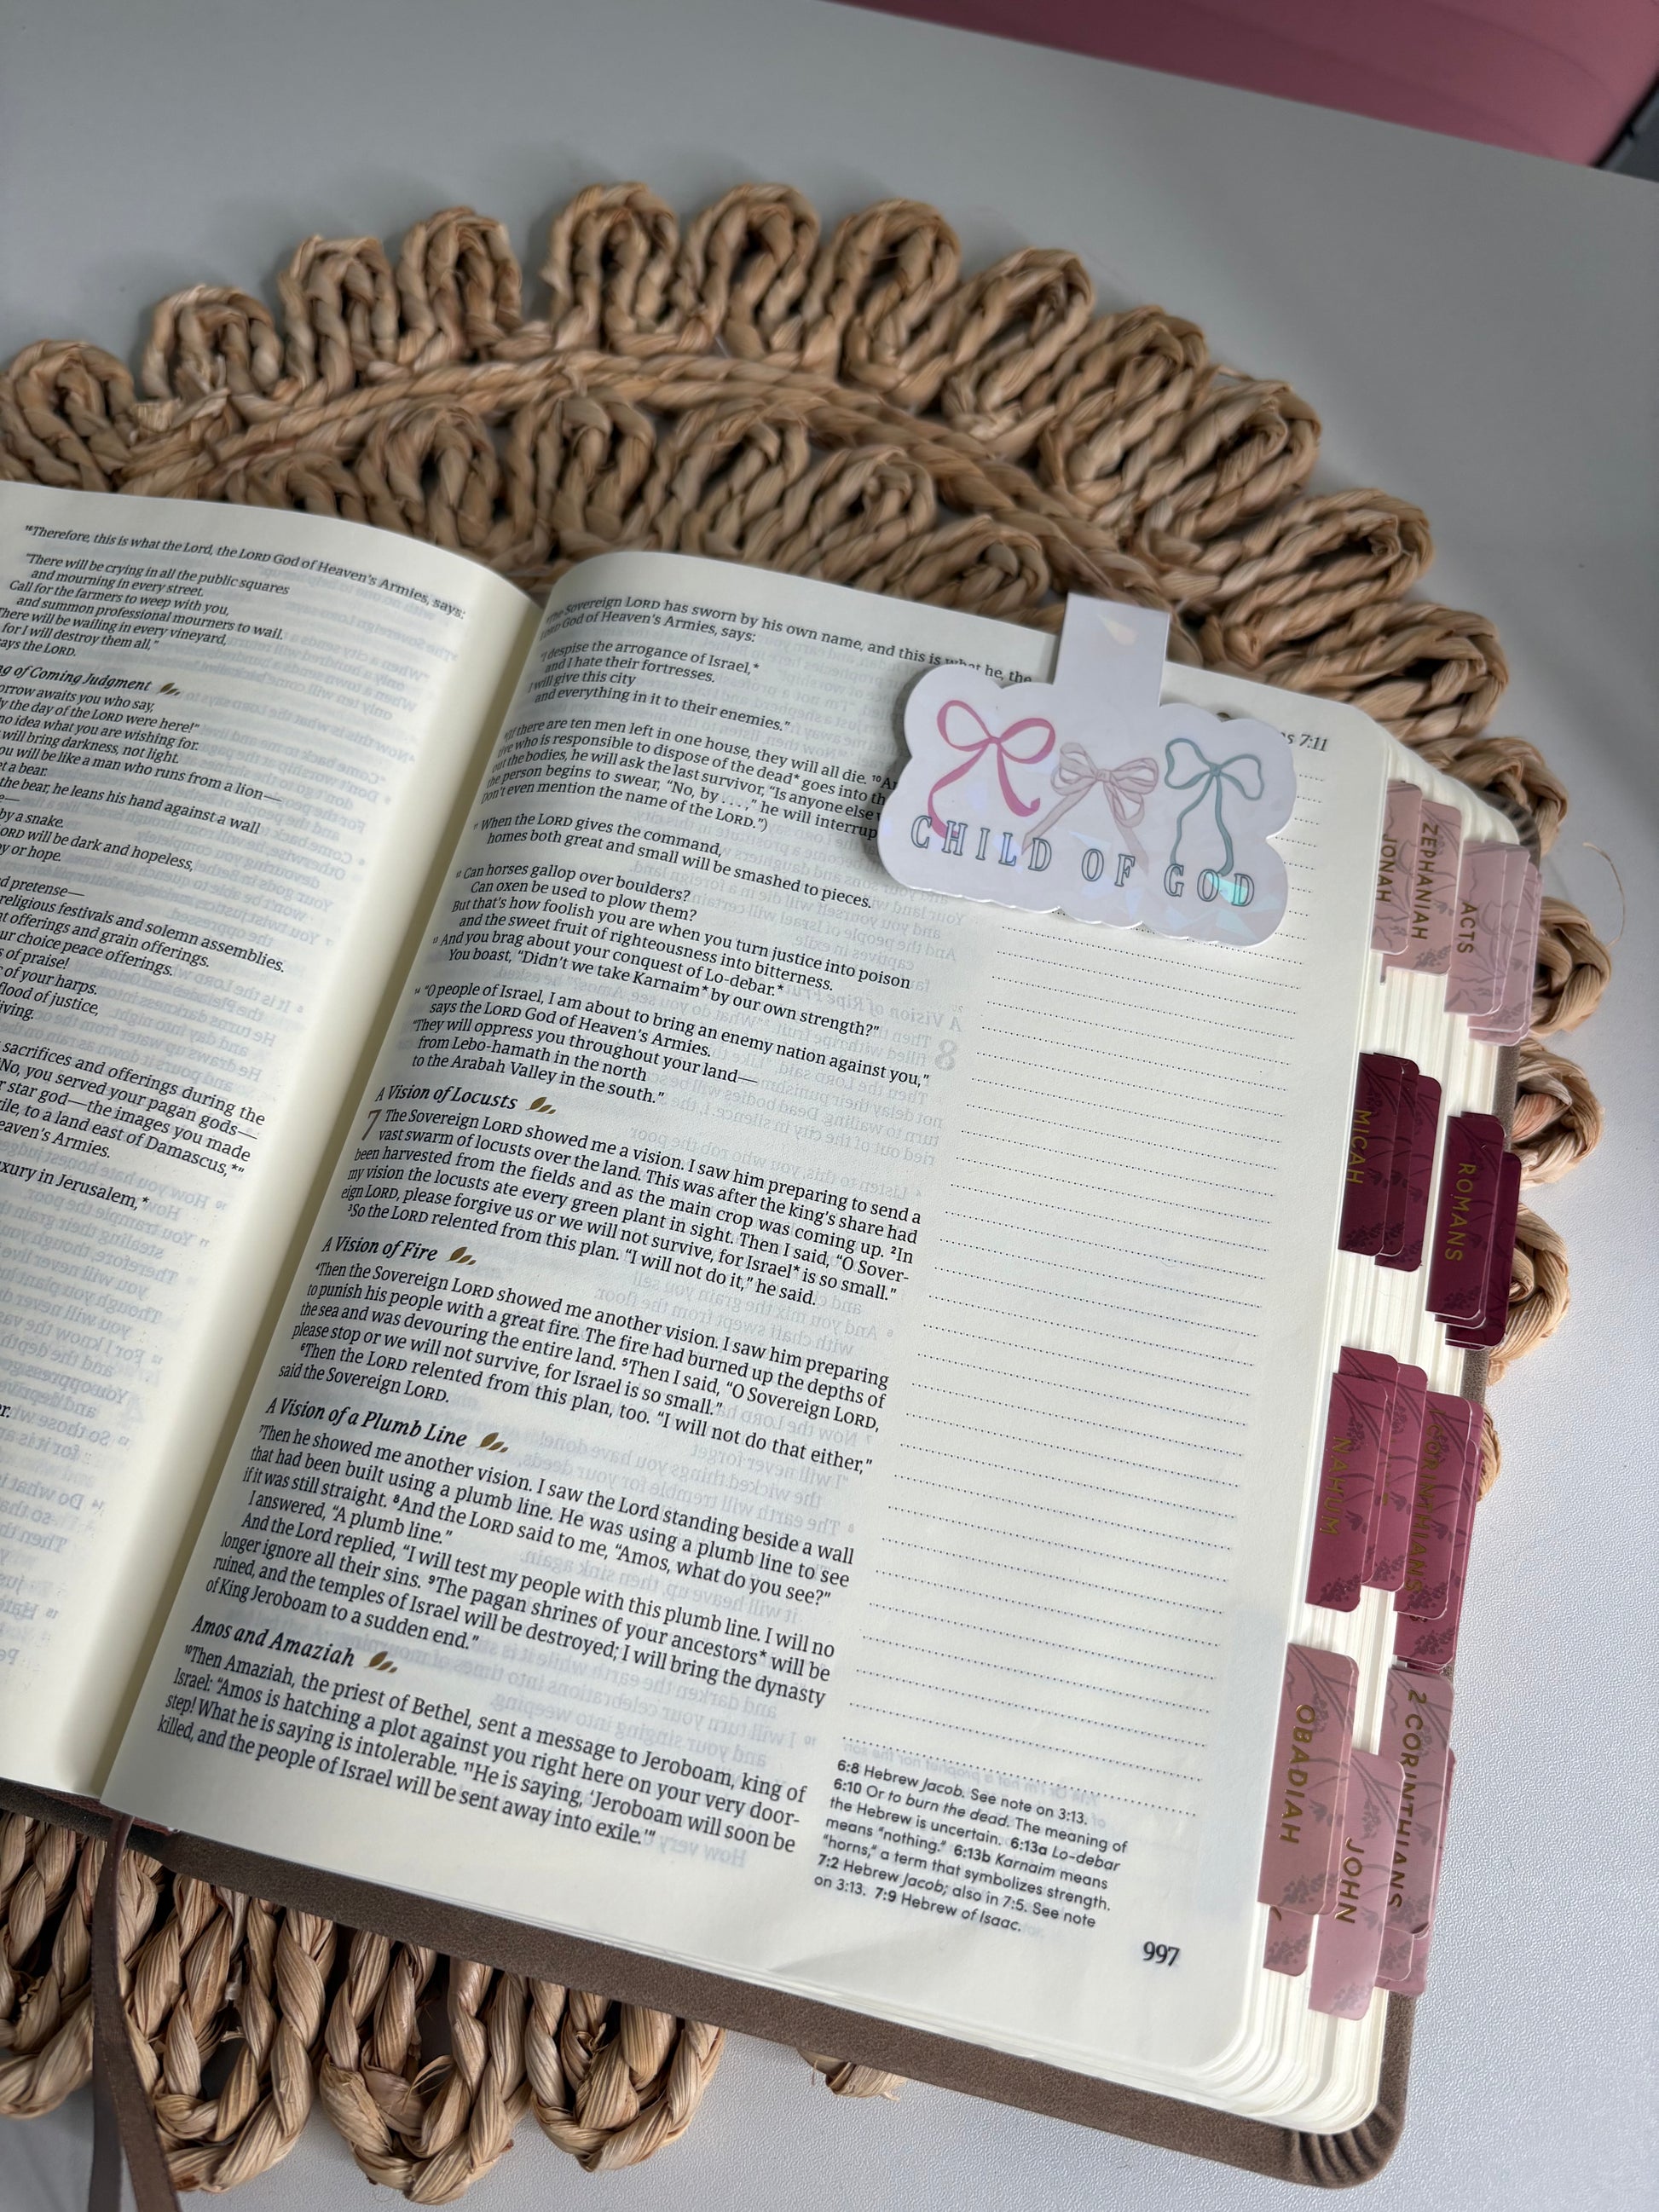 16Therefore, this is what the Lord, the LORD God of Heaven's Armies, says:
"There will be crying in all the public squares
and mourning in every street.
Call for the farmers to weep with you,
and summon professional mourners to wail.
There will be wailing in every vineyard,
for I will destroy them all,"
says the LORD.
of Coming Judgment
sorrow awaits you who say,
the day of the LORD were here!"
no idea what you are wishing for.
will bring darkness, not light.
you will be like a man who runs from a lion—
a bear.
the bear, he leans his hand against a wall
by a snake.
LORD will be dark and hopeless,
or hope.
pretense—
religious festivals and solemn assemblies.
offerings and grain offerings.
your choice peace offerings.
of praise!
of your harps.
flood of justice,
living.
sacrifices and offerings during the
"No, you served your pagan gods—
star god—the images you made
to a land east of Damascus,*"
Heaven's Armies.
luxury in Jerusalem,*
The Sovereign LORD has sworn by his own name, and this is what he, the
LORD God of Heaven's Armies, says:
"I despise the arrogance of Israel,*
and I hate their fortresses.
I will give this city
and everything in it to their enemies."
(If there are ten men left in one house, they will all die. 10
who is responsible to dispose of the dead* goes into
out the bodies, he will ask the last survivor, "Is anyone else
the person begins to swear, "No, by . . . ," he will interrup
Don't even mention the name of the LORD.")
11 When the LORD gives the command,
homes both great and small will be smashed to pieces.
12 Can horses gallop over boulders?
Can oxen be used to plow them?
But that's how foolish you are when you turn justice into poison
and the sweet fruit of righteousness into bitterness.
13 And you brag about your conquest of Lo-debar.*
You boast, "Didn't we take Karnaim* by our own strength?"
14 "O people of Israel, I am about to bring an enemy nation against you,"
says the LORD God of Heaven's Armies.
"They will oppress you throughout your land—
from Lebo-hamath in the north
to the Arabah Valley in the south."
A Vision of Locusts
7 The Sovereign LORD showed me a vision. I saw him preparing to send a
vast swarm of locusts over the land. This was after the king's share had
been harvested from the fields and as the main crop was coming up. 2In
my vision the locusts ate every green plant in sight. Then I said, "O Sover-
eign LORD, please forgive us or we will not survive, for Israel* is so small."
3So the LORD relented from this plan. "I will not do it," he said.
A Vision of Fire
4Then the Sovereign LORD showed me another vision. I saw him preparing
to punish his people with a great fire. The fire had burned up the depths of
the sea and was devouring the entire land. 5Then I said, "O Sovereign LORD,
please stop or we will not survive, for Israel is so small."
6Then the LORD relented from this plan, too. "I will not do that either,"
said the Sovereign LORD.
A Vision of a Plumb Line
7Then he showed me another vision. I saw the Lord standing beside a wall
that had been built using a plumb line. He was using a plumb line to see
if it was still straight. 8And the LORD said to me, "Amos, what do you see?"
I answered, "A plumb line."
And the Lord replied, "I will test my people with this plumb line. I will no
longer ignore all their sins. 9The pagan shrines of your ancestors* will be
ruined, and the temples of Israel will be destroyed; I will bring the dynasty
of King Jeroboam to a sudden end."
Amos and Amaziah
10Then Amaziah, the priest of Bethel, sent a message to Jeroboam, king of
Israel: "Amos is hatching a plot against you right here on your very door-
step! What he is saying is intolerable. 11He is saying, 'Jeroboam will soon be
killed, and the people of Israel will be sent away into exile.'"
7:11
CHILD OF GOD
6:8 Hebrew Jacob. See note on 3:13.
6:10 Or to burn the dead. The meaning of
the Hebrew is uncertain. 6:13a Lo-debar
means "nothing." 6:13b Karnaim means
"horns," a term that symbolizes strength.
7:2 Hebrew Jacob; also in 7:5. See note
on 3:13. 7:9 Hebrew of Isaac.
997
JONAH
ZEPHANIAH
ACTS
MICAH
ROMANS
NAHUM
CORINTHIANS
OBADIAH
JOHN
2 CORINTHIANS